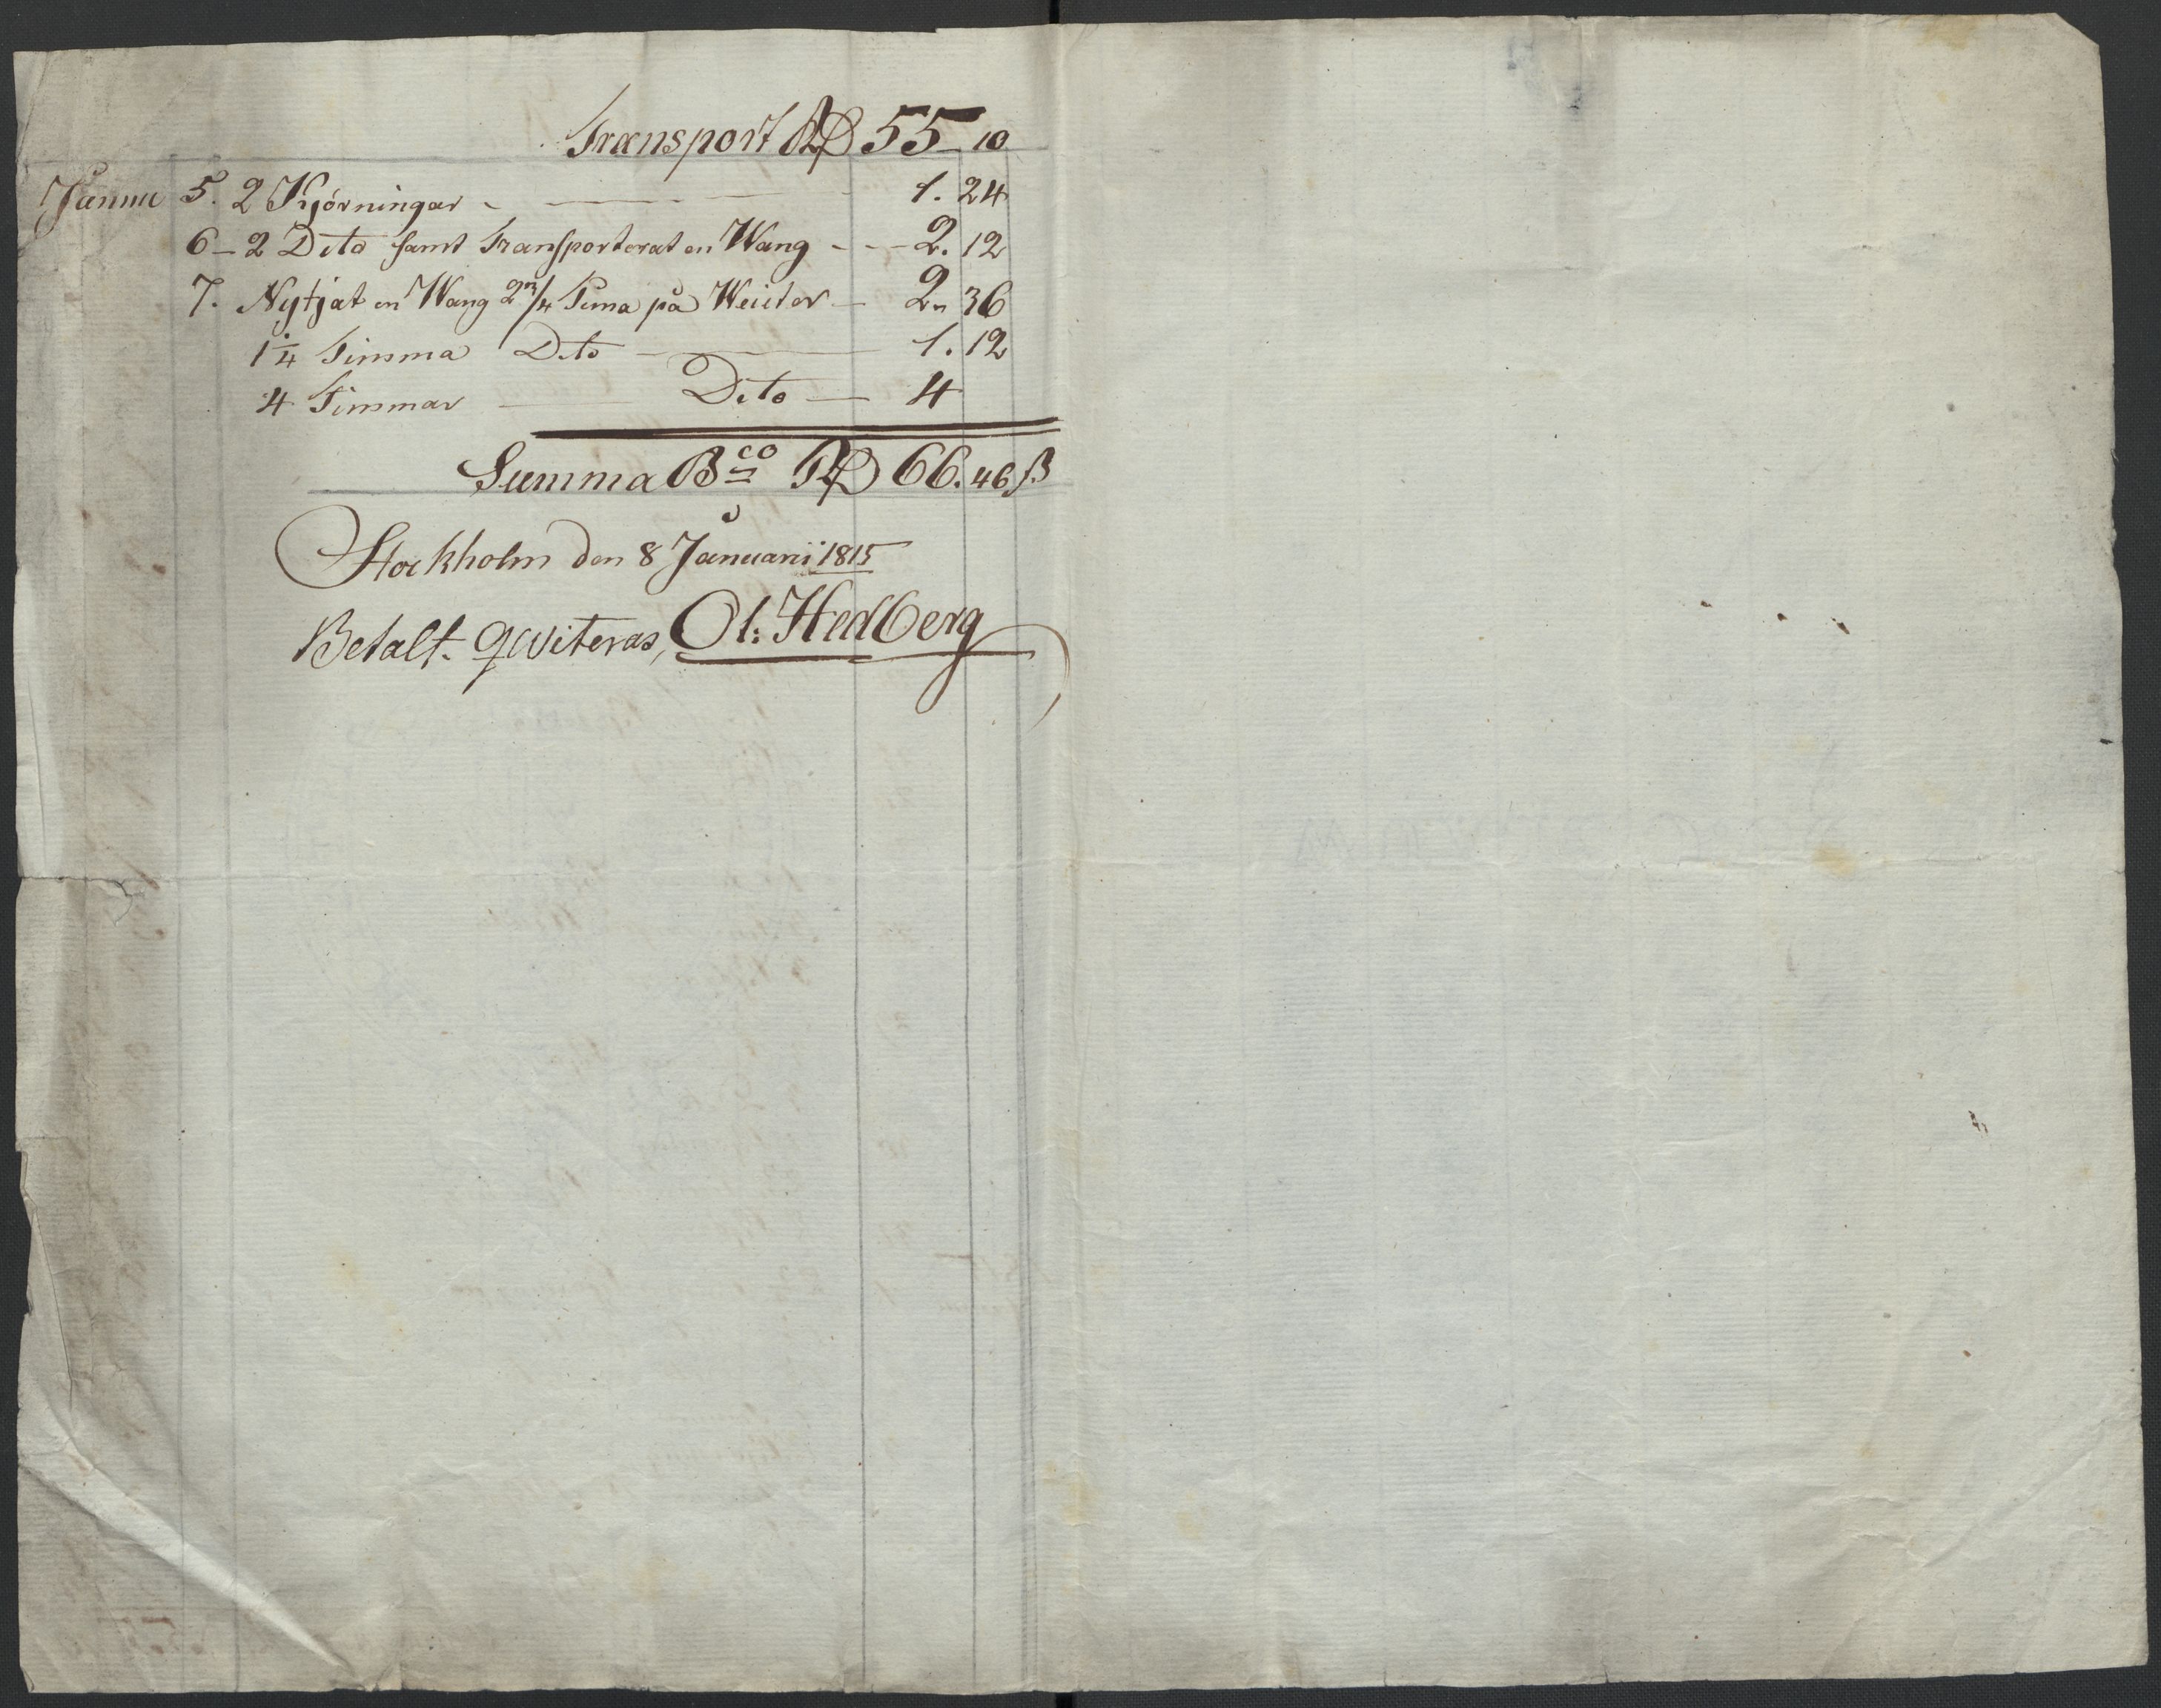 Transport RD 55 10
Janua 5. 2 Kjörningar - 1. 24
6 - 2 Dito samt Transporterat en Wang - - 2. 12
7. Nyttjat en Wang 2 3/4 Tima på - 2. 36
1 1/4 Timma Dito - 1. 12
4 Timmar - Dito - 4
Summa Bco RD 66. 46 ß
Stockholm den 8 Januarii 1815
Betalt. qwiteras, Ol: Hedberg